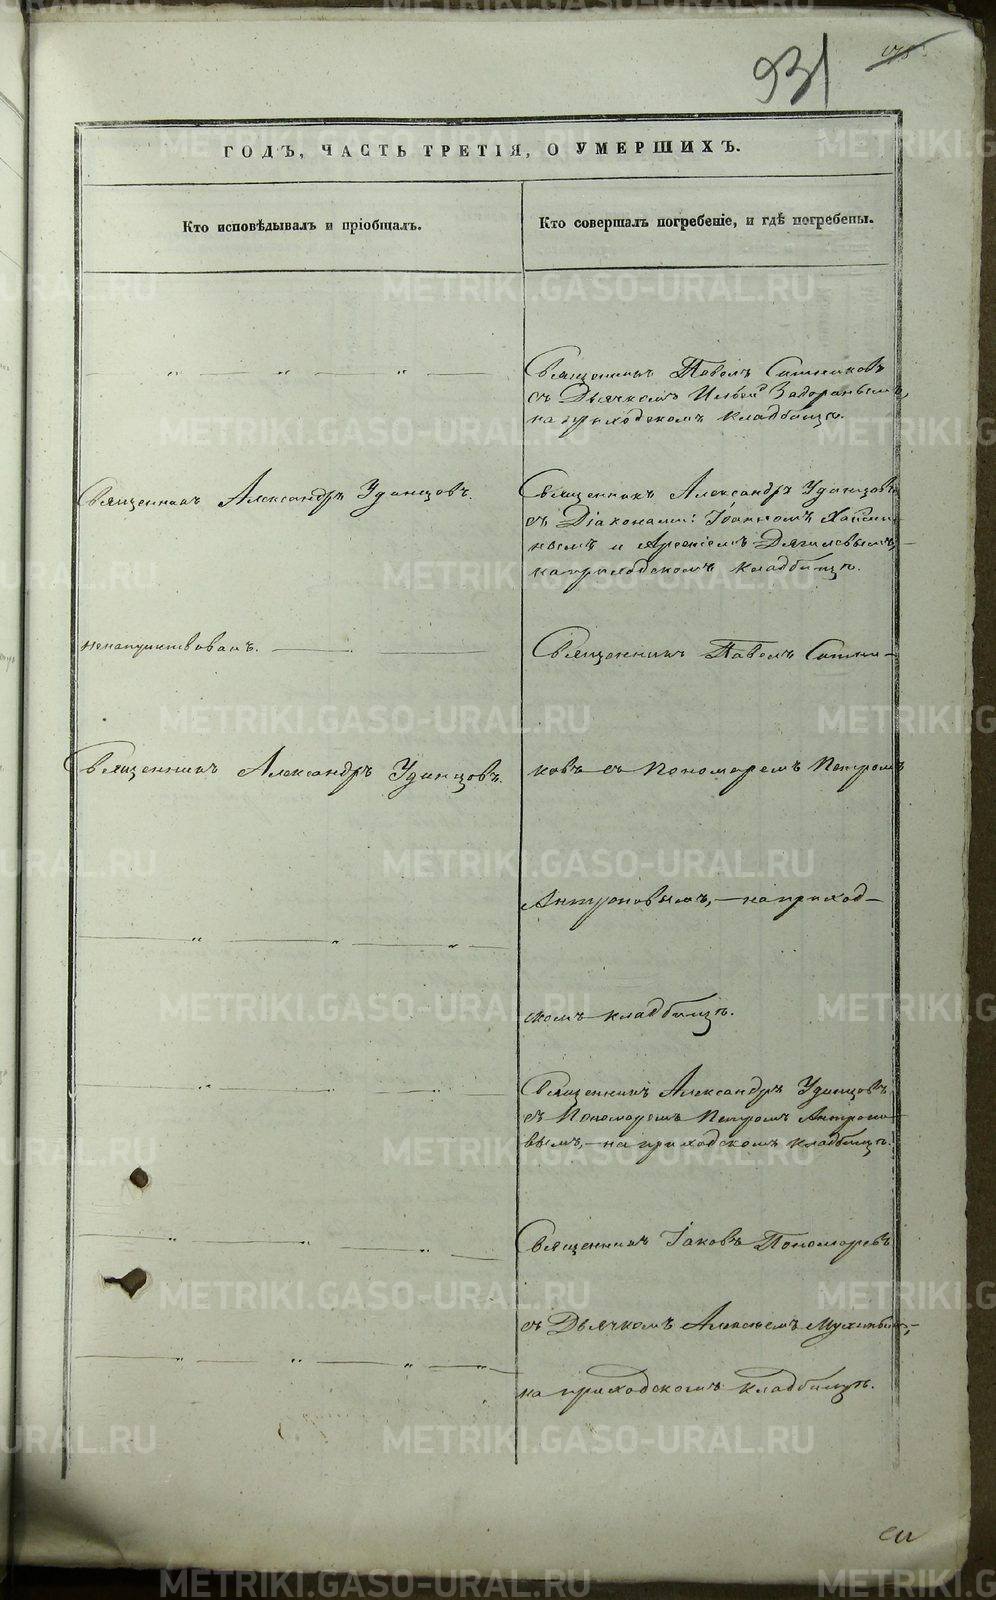 931
ГОДЪ, ЧАСТЬ ТРЕТІЯ, О УМЕРШИХЪ.
Кто исповѣдывалъ и пріобщалъ.
Кто совершалъ погребеніе, и гдѣ погребены.
Священникъ Павелъ Ситниковъ
съ Дьячкомъ Ильей Задоранымъ,
на приходскомъ кладбищѣ.
Священникъ Александръ Удинцовъ.
Священникъ Александръ Удинцовъ
съ Діаконами: Іоанномъ
и Арсеніемъ Дягилевымъ,
на приходскомъ кладбищѣ.
ненапутствованъ.
Священникъ Павелъ Ситни-
Священникъ Александръ Удинцовъ.
ковъ съ Пономаремъ Петромъ
Антроповымъ, - на приход-
скомъ кладбищѣ.
Священникъ Александръ Удинцовъ
съ Пономаремъ Петромъ Антропо-
вымъ, - на приходскомъ кладбищѣ.
Священникъ Іаковъ Пономаревъ
съ Дьячкомъ Алексѣемъ Мухинымъ,
на приходскомъ кладбищѣ.
METRIKI.GASO-URAL.RU